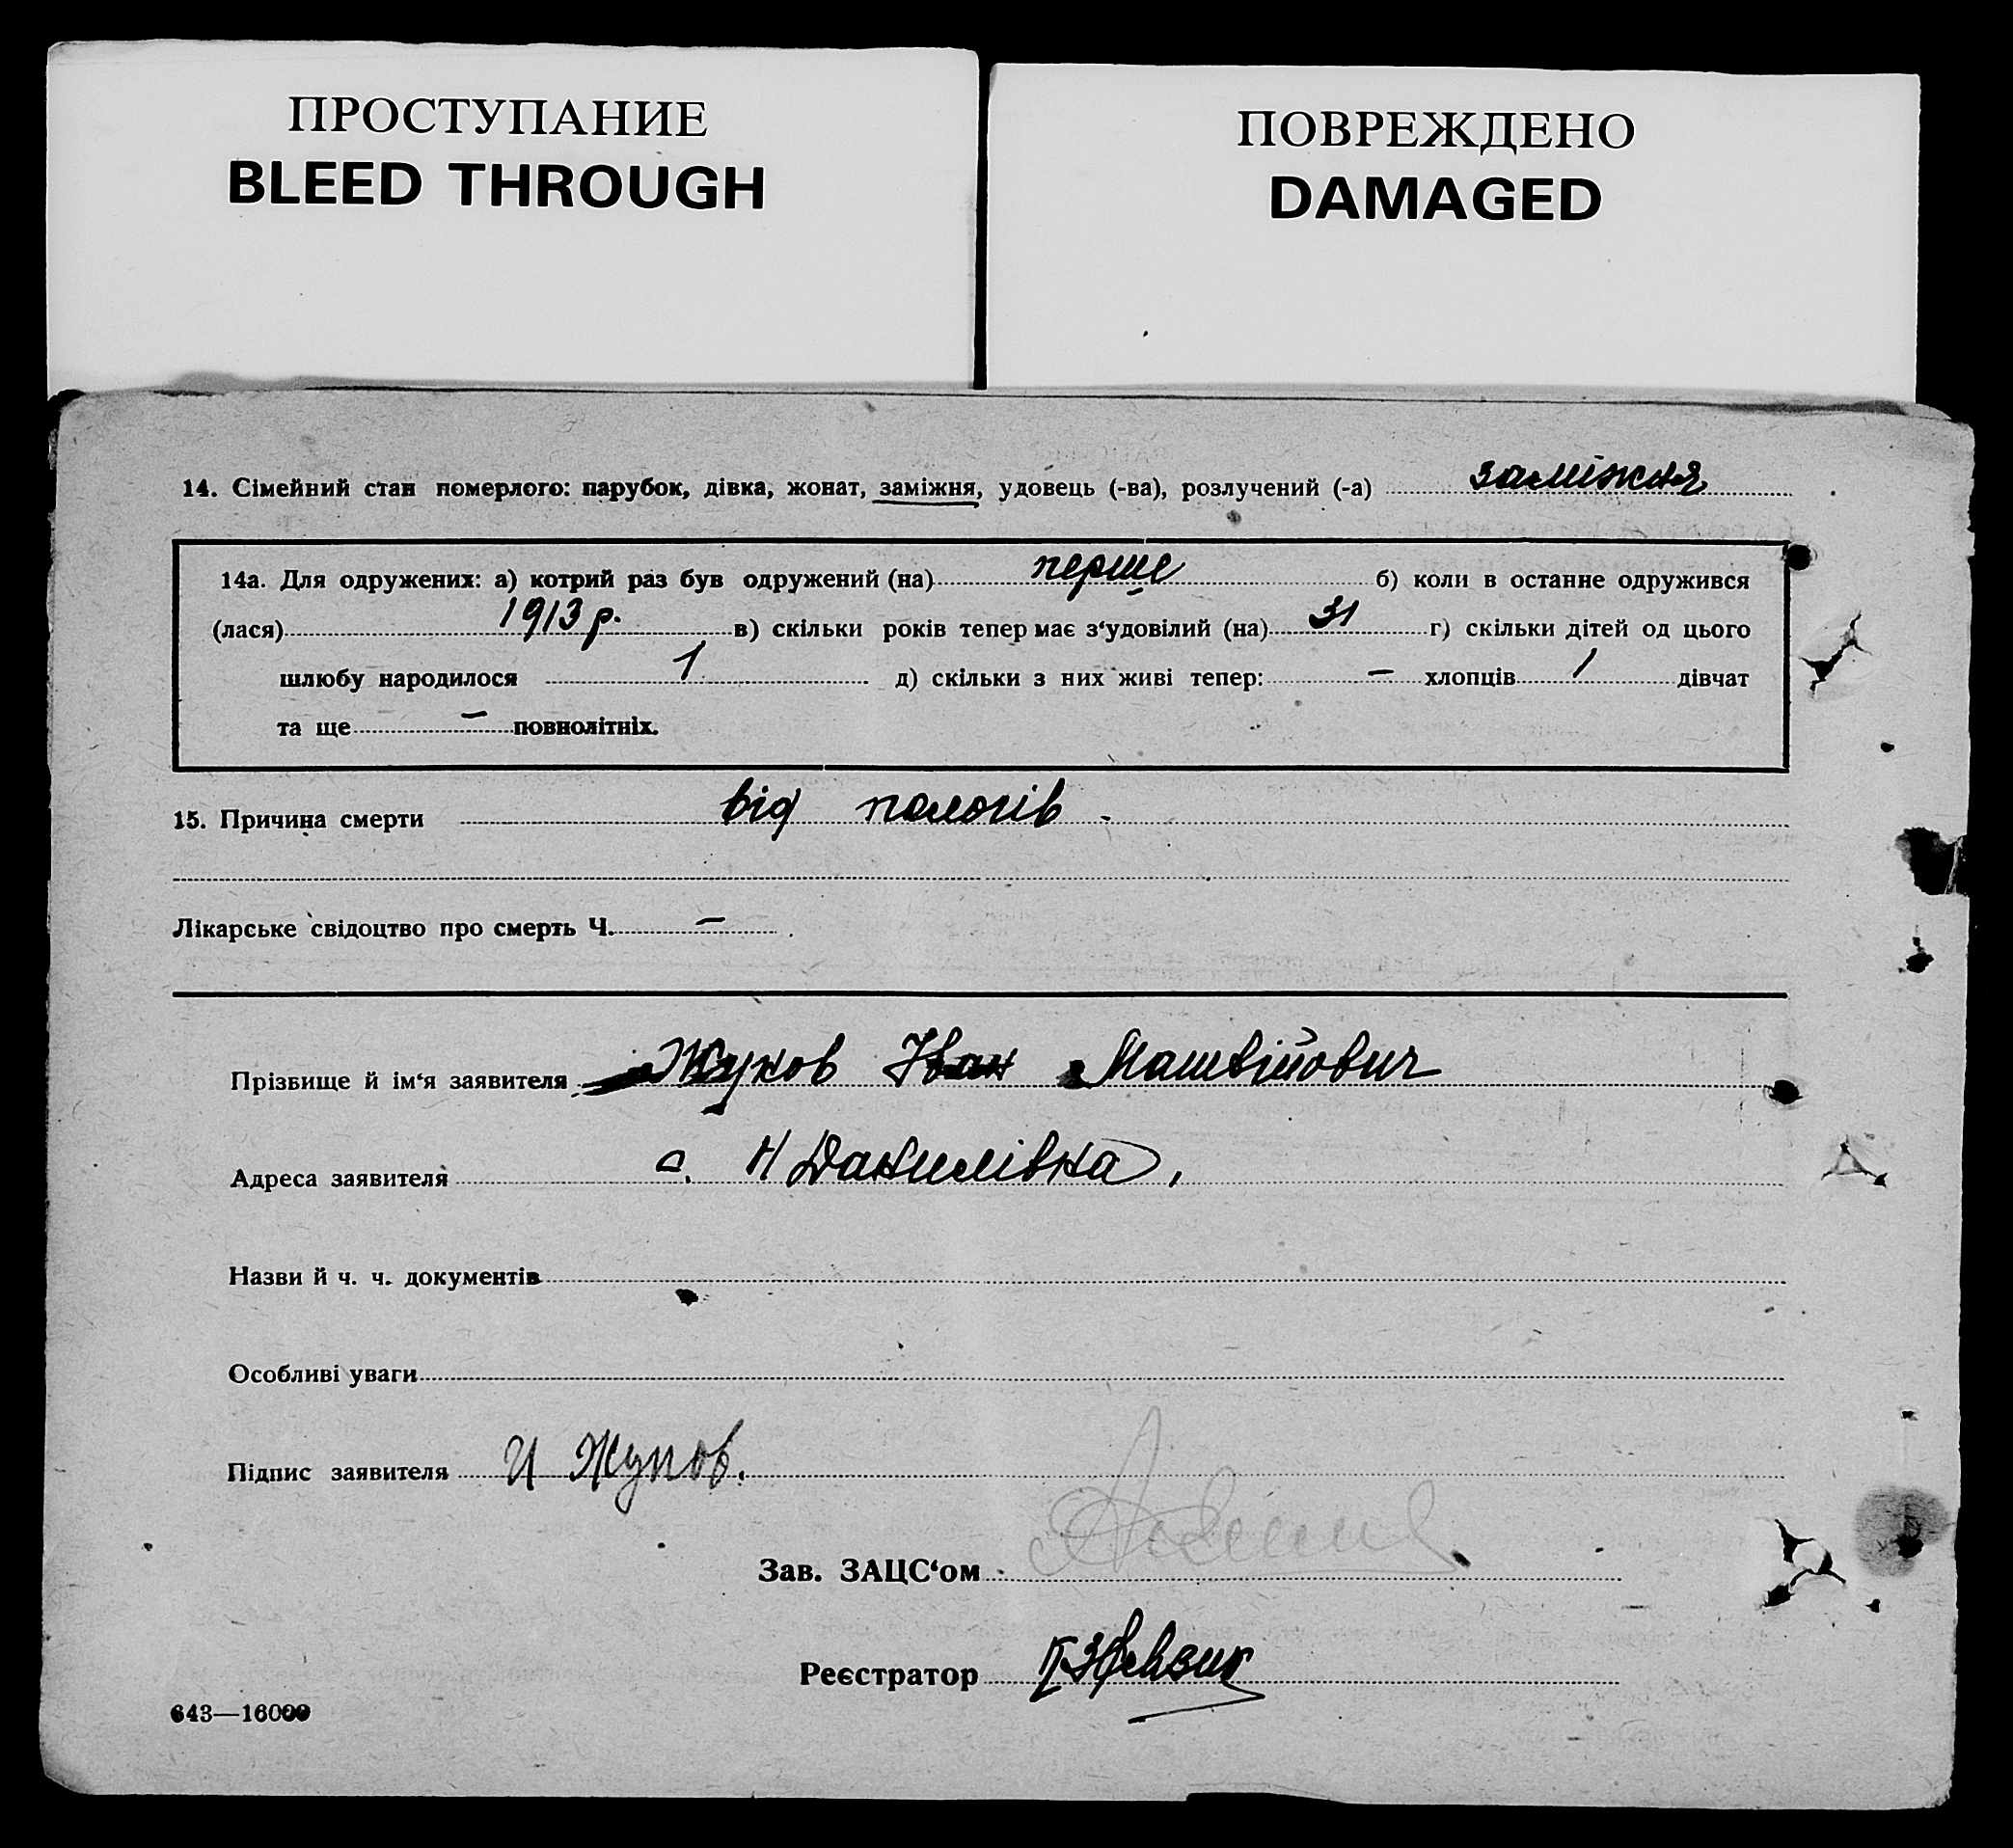 ПРОСТУПАНИЕ
BLEED THROUGH
ПОВРЕЖДЕНО
DAMAGED
14. Сімейний стан померлого: парубок, дівка, жонат, заміжня, удовець (-ва), розлучений (-а) заміжня
14а. Для одружених: а) котрий раз був одружений (на) перше б) коли в останне одружився
(лася) 1913 р. в) скільки років тепер має з‘удовілий (на) 31 г) скільки дітей од цього
шлюбу народилося 1 д) скільки з них живі тепер: – хлопців 1 дівчат
та ще – повнолітніх.
15. Причина смерти від пологів -
Лікарське свідоцтво про смерть Ч. –
Прізвище й ім‘я заявителя Жуков Іван Матвійович
Адреса заявителя с. Н Данилівка,
Назви й ч. ч. документів
Особливі уваги
Підпис заявителя И Жуков.
Зав. ЗАЦС‘ом
Реєстратор
643—16000